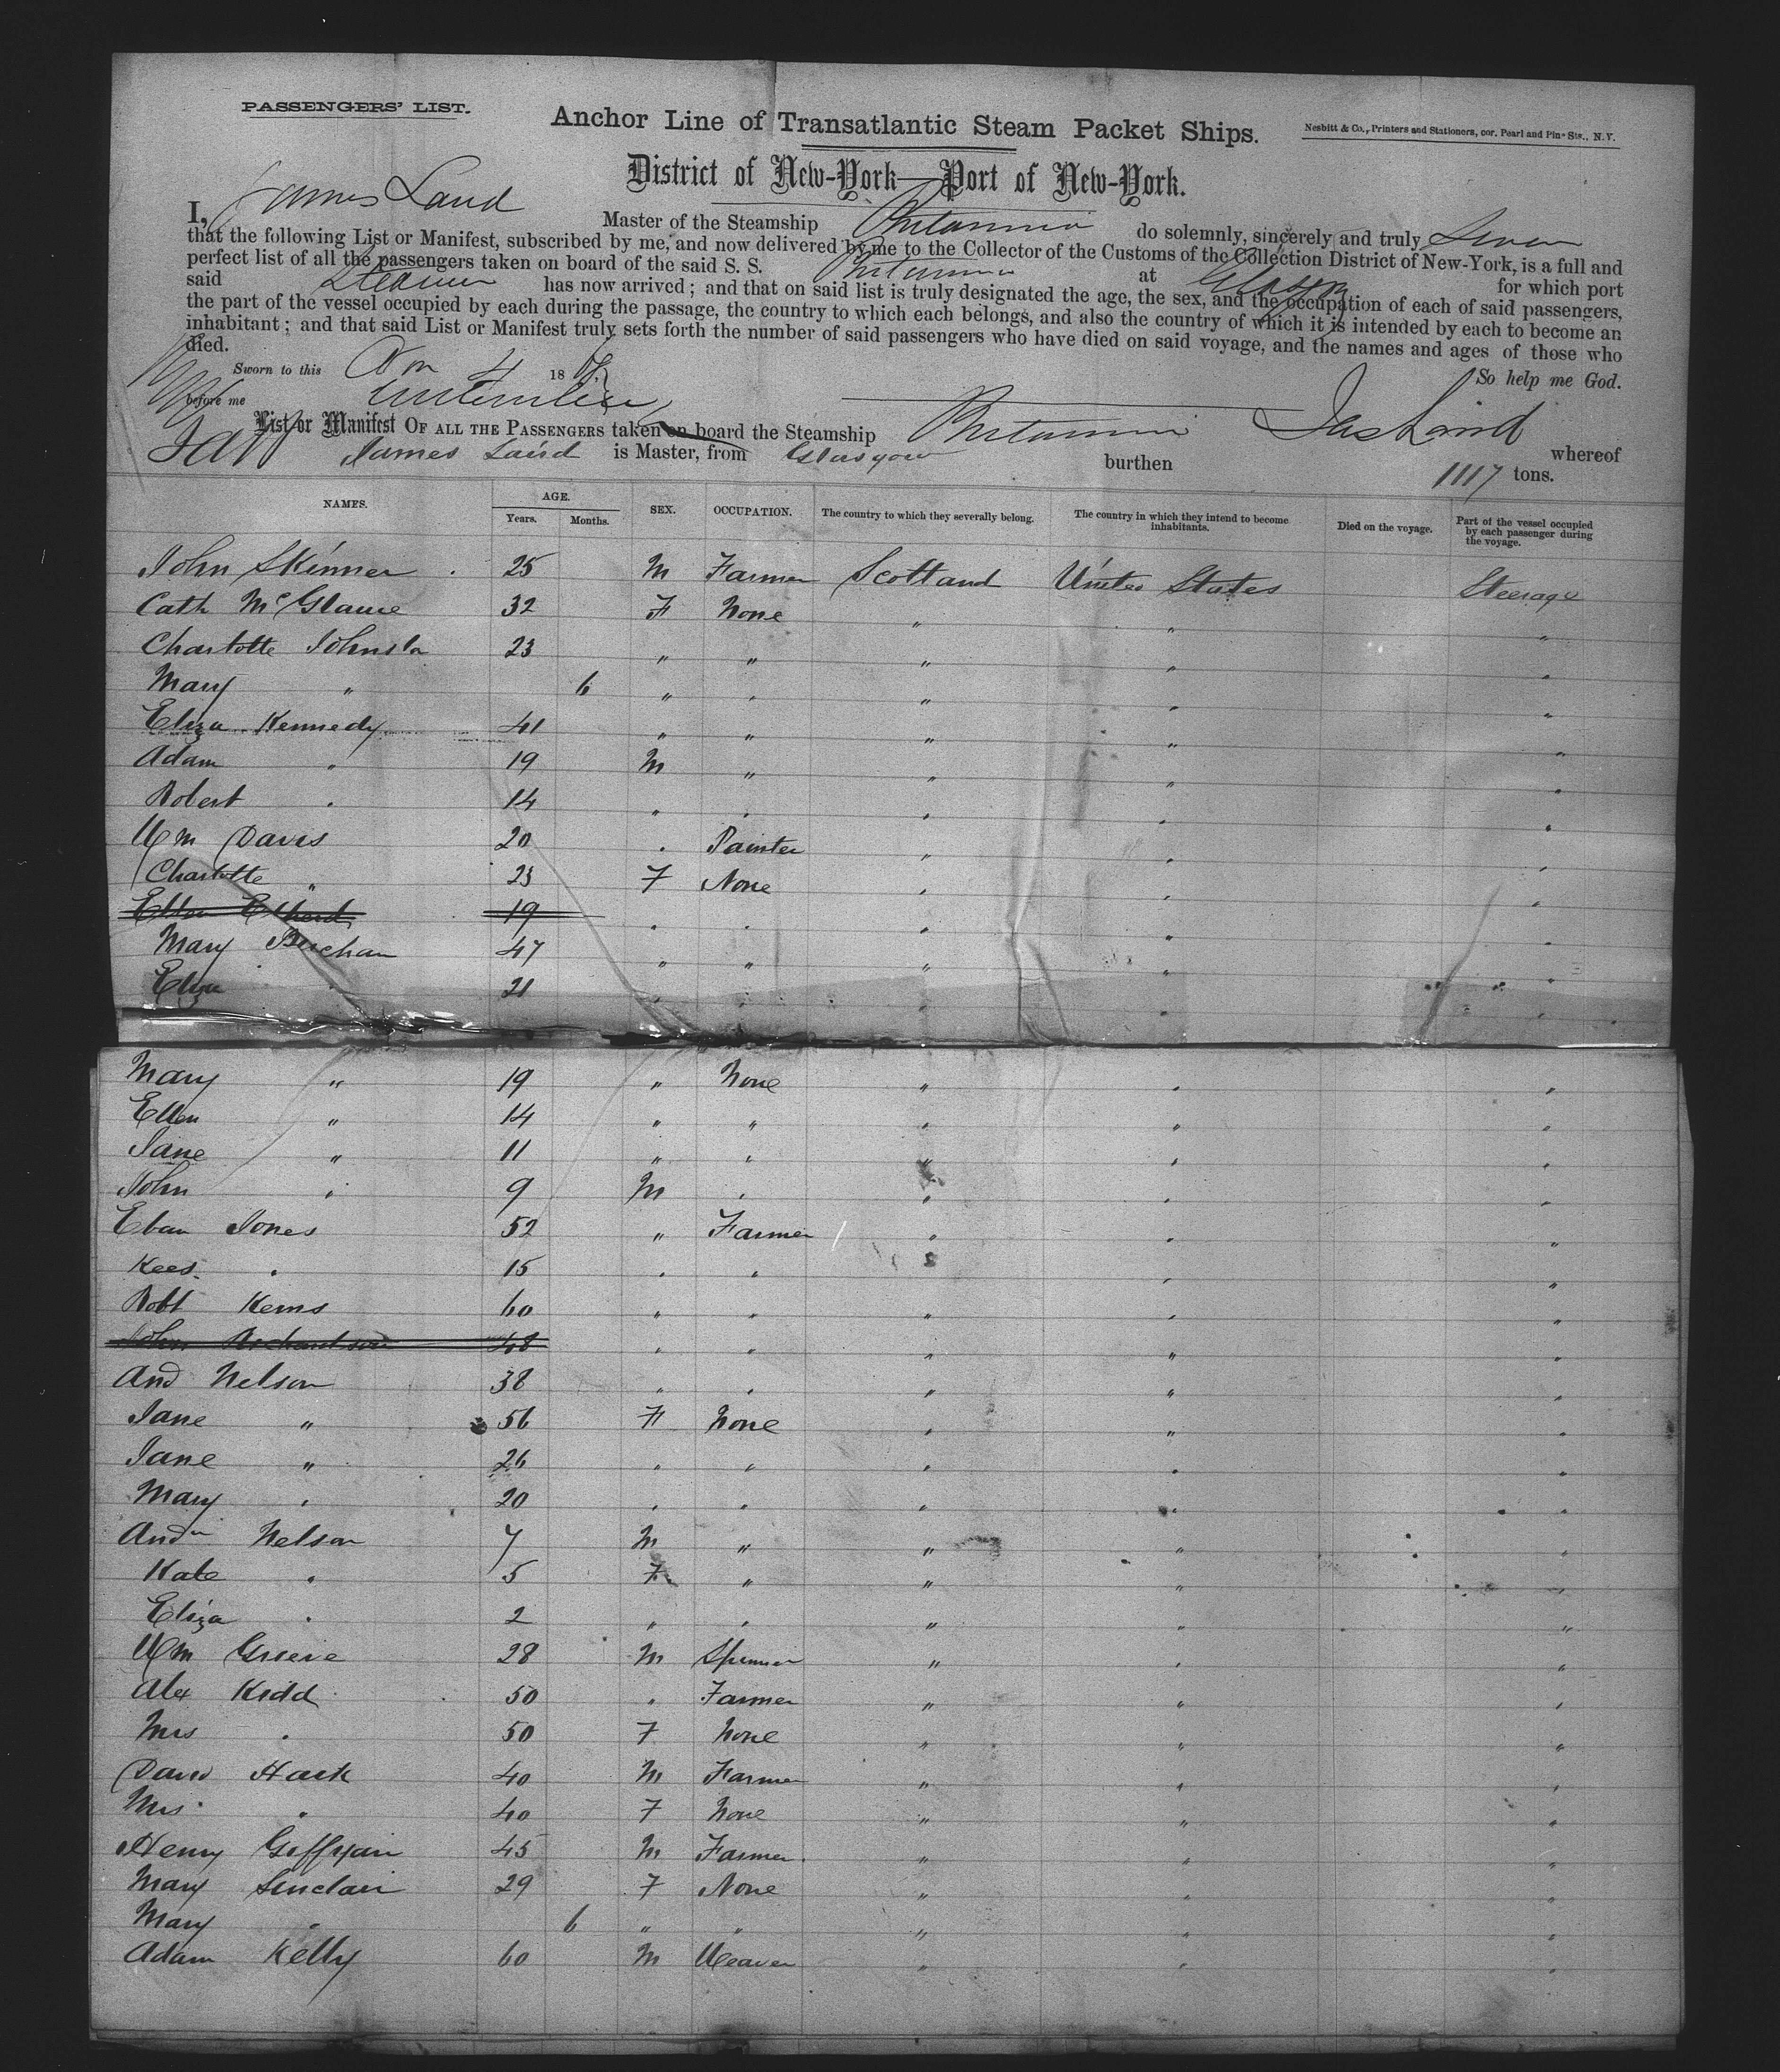 PASSENGERS' LIST.
Anchor Line of Transatlantic Steam Packet Ships.
Nesbitt & Co., Printers and Stationers, cor. Pearl and Pine Sts., N. Y.
District of New-York—Port of New-York.
I, James Laird Master of the Steamship Britannia do solemnly, sincerely and truly Swear
that the following List or Manifest, subscribed by me, and now delivered by me to the Collector of the Customs of the Collection District of New-York, is a full and
perfect list of all the passengers taken on board of the said S. S. Britannia at Glasgow for which port
said Steamer has now arrived; and that on said list is truly designated the age, the sex, and the occupation of each of said passengers,
the part of the vessel occupied by each during the passage, the country to which each belongs, and also the country of which it is intended by each to become an
inhabitant; and that said List or Manifest truly sets forth the number of said passengers who have died on said voyage, and the names and ages of those who
died.
So help me God.
Sworn to this 4 18
before me
Jas Laird
List or Manifest OF ALL THE PASSENGERS taken on board the Steamship Britannia whereof
James Laird is Master, from Glasgow burthen 1117 tons.
NAMES. AGE. Years. Months. SEX. OCCUPATION. The country to which they severally belong. The country in which they intend to become inhabitants. Died on the voyage. Part of the vessel occupied by each passenger during the voyage.
John Skinner 25 M Farmer Scotland United States Steerage
Cath 32 F None " " "
Charlotte Johnston 23 " " " " "
Mary " 6 " " " " "
Eliza Kennedy 41 " " " " "
Adam " 19 M " " " "
Robert " 14 " " " " "
Wm Davis 20 " Painter " " "
Charlotte " 23 F None " " "
Ellen 19 " " " " "
Mary Buchan 47 " " " " "
Eliza " 21 " " " " "
Mary " 19 " None " " "
Ellen " 14 " " " " "
Jane " 11 " " " " "
John " 9 M " " " "
Eban Jones 52 " Farmer " " "
Rees " 15 " " " " "
Robt Kerns 60 " " " " "
John Richardson 48 " " " " "
And Nelson 38 " " " " "
Jane " 56 F None " " "
Jane " 26 " " " " "
Mary " 20 " " " " "
Andw Nelson 7 M " " " "
Kate " 5 F " " " "
Eliza " 2 " " " " "
Wm Grieve 28 M Spinner " " "
Alex Kidd 50 " Farmer " " "
Mrs " 50 F None " " "
David Hack 40 M Farmer " " "
Mrs " 40 F None " " "
Henry 45 M Farmer " " "
Mary Sinclair 29 F None " " "
Mary " 6 " " " " "
Adam Kelly 60 M Weaver " " "